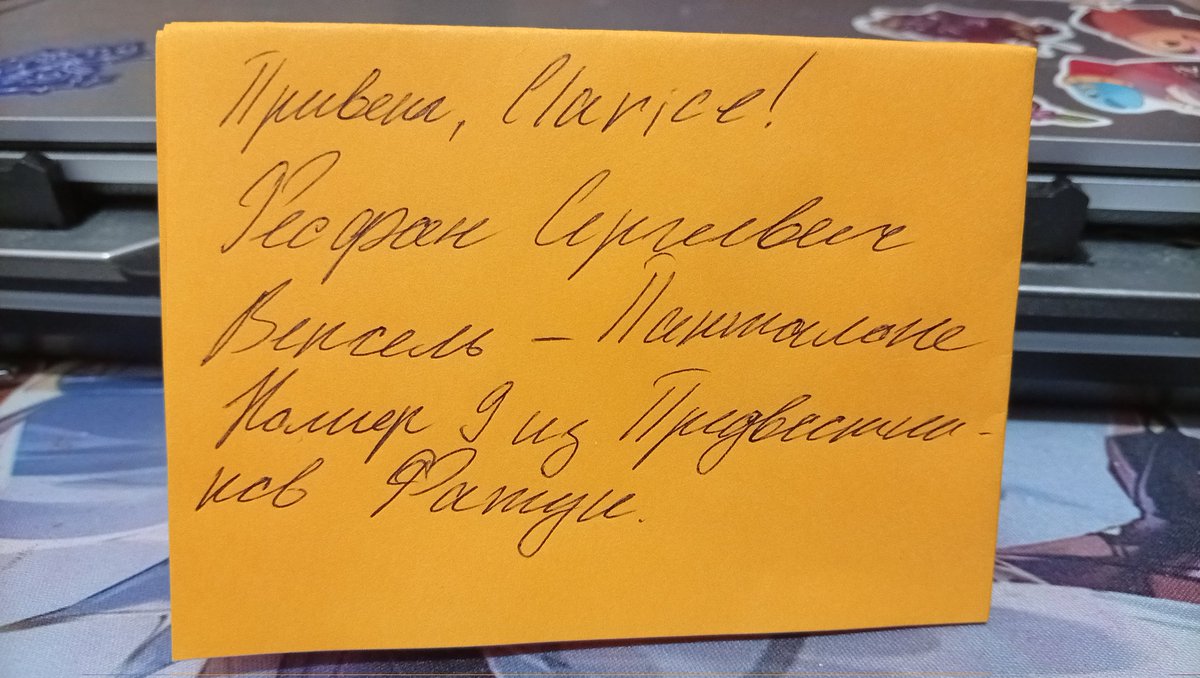 Привет, Clarice!
Феофан Сергеевич
Вексель – Панталоне
Номер 9 из Предвестни-
ков Фатуи.